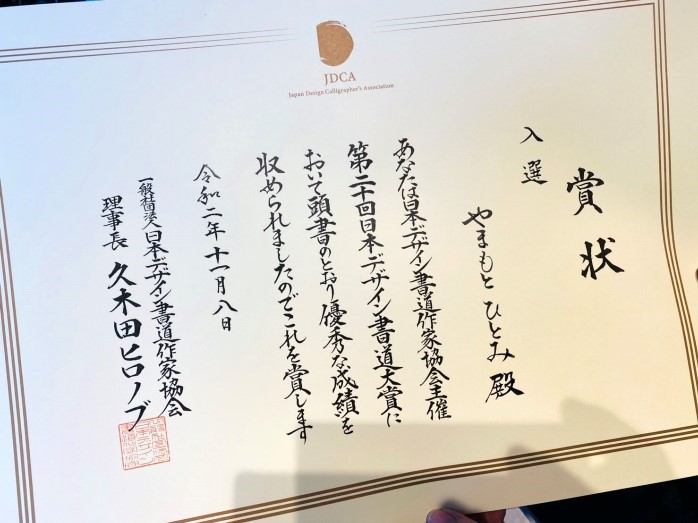 JDCA
Japan Design Calligrapher's Association
賞状
入選
やまもと ひとみ 殿
あなたは日本デザイン書道作家協会主催
第二十回日本デザイン書道大賞に
おいて頭書のとおり優秀な成績を
収められましたのでこれを賞します
令和二年十一月八日
一般社団法人日本デザイン書道作家協会
理事長 久木田ヒロノブ